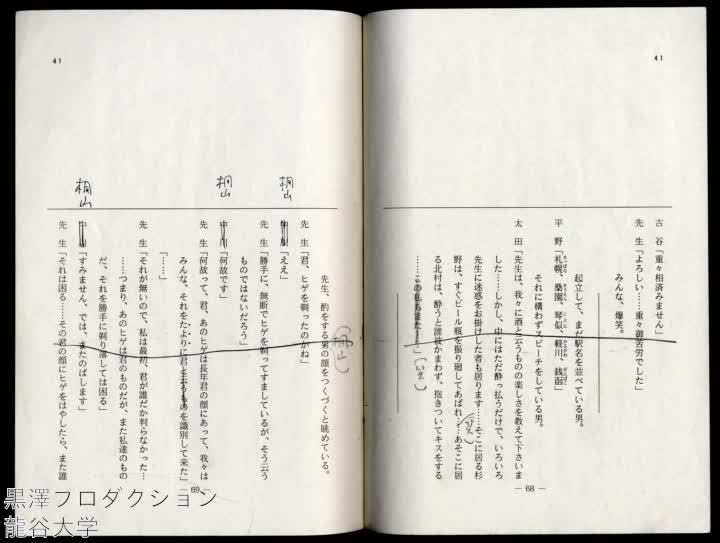 41
古谷「重々相済みません」
先生「よろしい……重々御苦労でした」
みんな、爆笑。
起立して、まだ駅名を並べている男。
平野「札幌、桑園、琴似、軽川、銭函」
それに構わずスピーチをしている男。
太田「先生は、我々に酒と云うものの楽しさを教えて下さいま
した……しかし、中にはただ酔っ払うだけで、いろいろ
先生に迷惑をお掛けした者も居ります……そこに居る杉
野は、すぐビール瓶を振り廻してあばれ……あそこに居
る北村は、酔うと誰彼かまわず、抱きついてキスをする
……この私もまた……」
― 68 ―
41
先生、酌をする男の顔をつくづくと眺めている。
桐山
先生「君、ヒゲを剃ったのかね」
桐山
「ええ」
先生「勝手に、無断でヒゲを剃ってすましているが、そう云う
ものではないだろう」
桐山
中川「何故です」
先生「何故って、君、あのヒゲは長年君の顔にあって、我々は
みんな、それをたよりに君と云うものを識別して来た」
「……」
先生「それが無いので、私は最初、君が誰だか判らなかった…
……つまり、あのヒゲは君のものだが、また私達のもの
だ、それを勝手に剃り落しては困る」
桐山
中川「すみません、では、またのばします」
先生「それは困る……その君の顔にヒゲをはやしたら、また誰
― 69 ―
黒澤プロダクション
龍谷大学